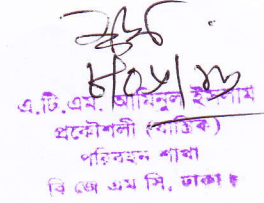 এ.টি.এম. আমিনুল ইসলাম
প্রকৌশলী (যান্ত্রিক)
পরিবহন শাখা
বি জে এম সি, ঢাকা।